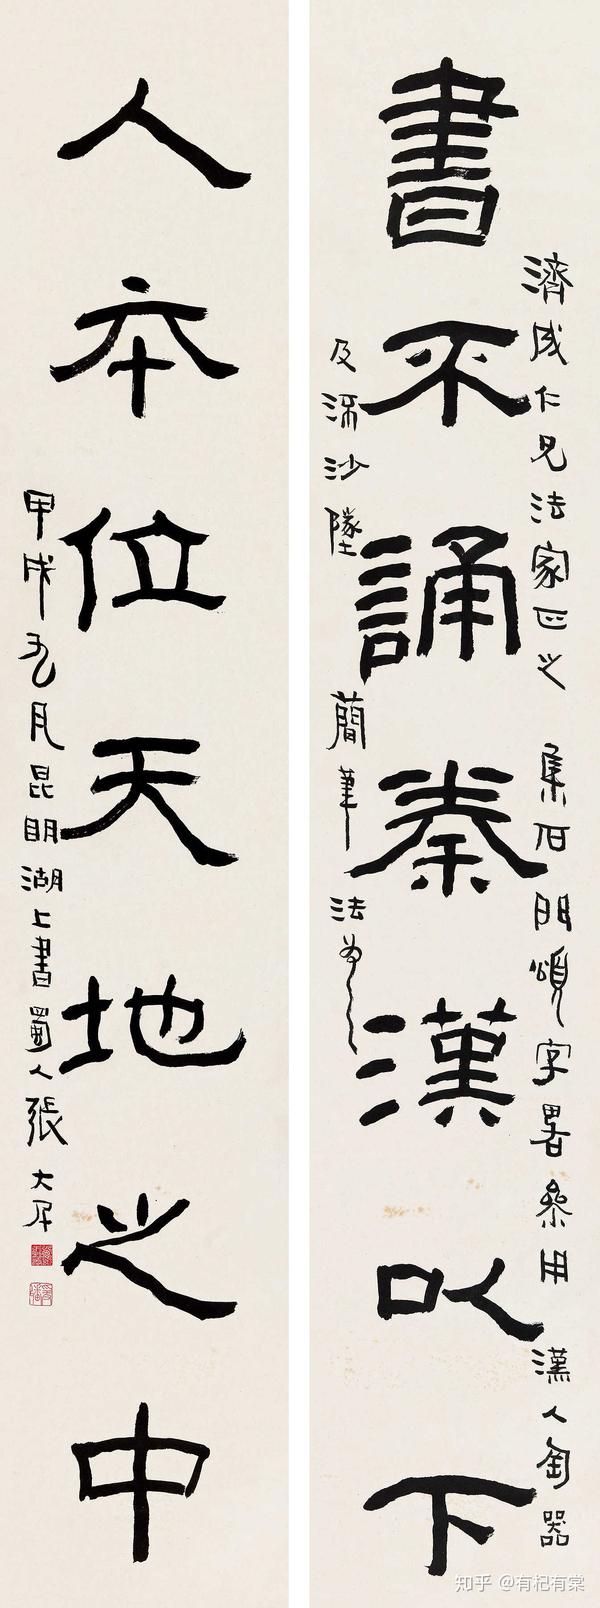 濟成仁兄法家正之 集石門頌字畧參用漢人匋器
書不誦秦漢以下
及流沙墜簡筆法為之
人本位天地之中
甲戌九月昆明湖上書蜀人張大千
知乎 @有杞有棠